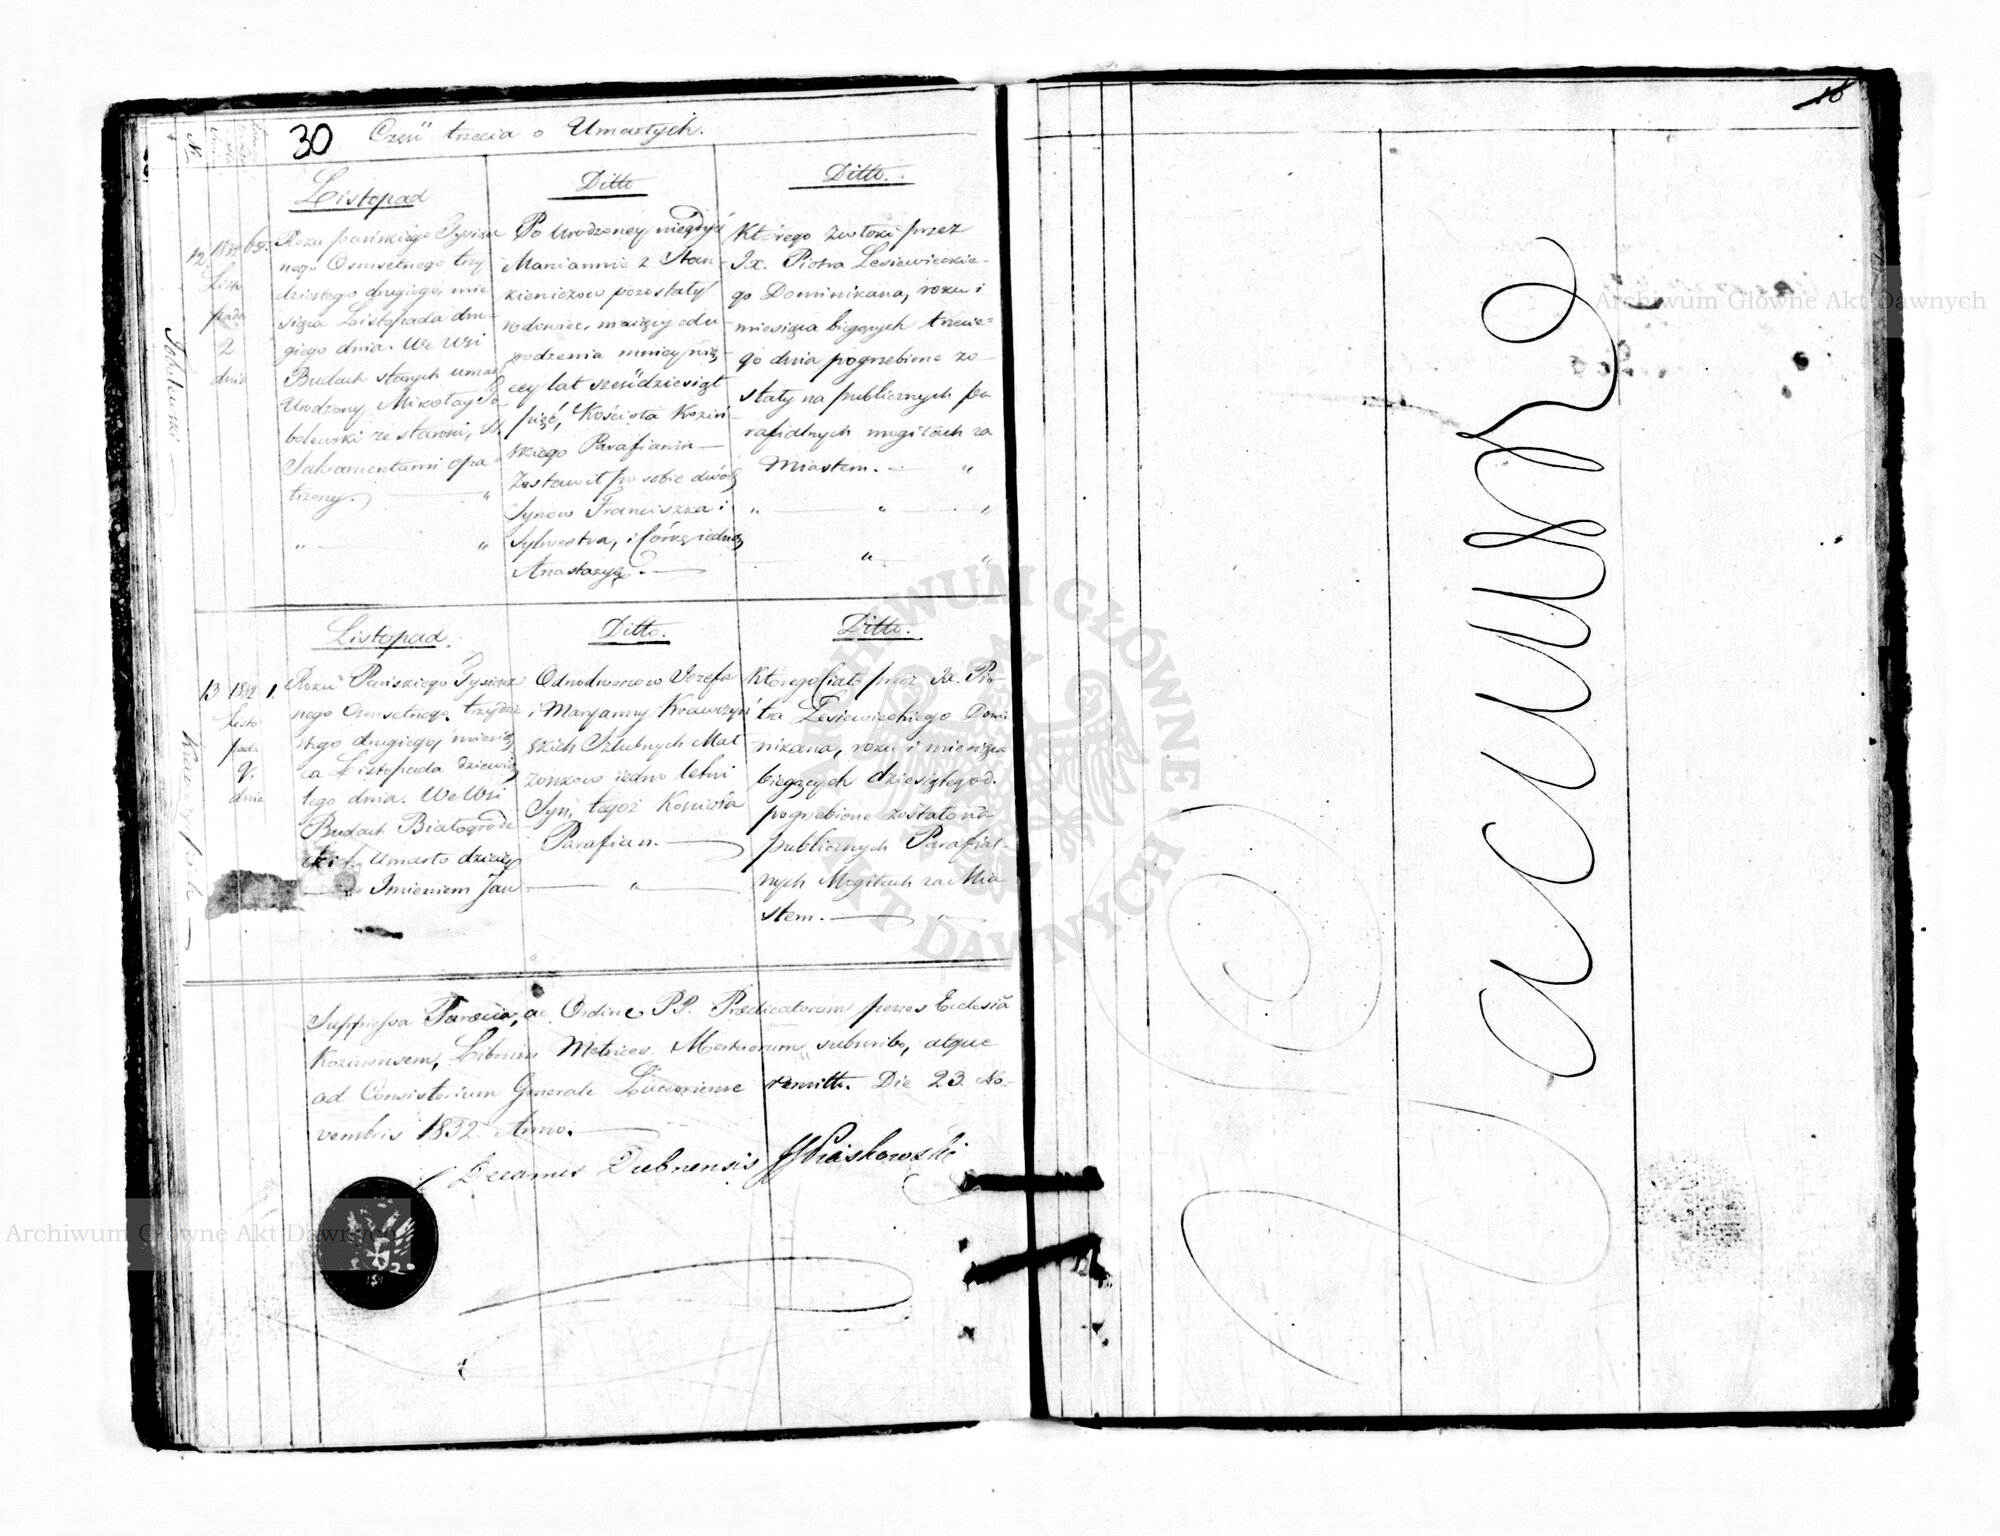 30 Część trzecia o Umarłych.
№
Listopad
12
1832
Listo
pada
2
dnia
65.
Sobolewski
Roku pańskiego Tysiącz
nego Osmsetnego trzy
dziestego drugiego, mie
siąca Listopada dru
giego dnia. We Wsi
Budach starych umarł
Urodzony Mikołay So
bolewski ze starości, SS.
Sakramentami opa=
trzony.
Ditto
Po Urodzoney niegdyś
Mariannie z Stan-
kiewiczow pozostały
wdowiec, maiący od u
rodzenia mniey wię-
cey lat sześćdziesiąt
pięć, Kościoła Koziń-
skiego Parafianin
Zostawił po sobie dwóch
Synow Franciszka i
Sylwestra, i Córkę iedną
Anastazyą.
Ditto.
Którego zwłoki przez
Jx. Piotra Lesiewieckie-
go Dominikana, roku i
miesiąca bieżących trzecie=
go dnia pogrzebione zo-
stały na publicznych pa
rafialnych mogiłach za
Miastem.
Listopad.
13
1832
Listo
pada
9.
dnia
1.
Roku Pańskiego Tysiącz
nego Osmsetnego trzydzie
stego drugiego, miesią
ca Listopada dziewią
tego dnia. We Wsi
Budach Białogrode
ckich Umarło dziecię
Imieniem Jan
Ditto.
Odnodworcow Jozefa
i Maryanny Krawczyń
skich Szlubnych Mał
żonkow iedno letni
Syn, tegoż Kościoła
Parafian.
Ditto.
Którego Ciało przez Jx. Pio-
tra Lesiewieckiego Domi
nikana, roku i miesiąca
bieżących dziesiątego d.
pogrzebione zostało na
publicznych Parafial
nych Mogiłach za Mia
stem.
Suppressa Parœcia, ac Ordine PP. Prædicatorum penes Ecclesiã
Kozinensem, Librum Metrices Mortuorum subscribo, atque
ad Consistorium Generale Luceoriense remitto. Die 23. No-
vembris 1832. Anno.
Decanus Dubnensis Piaskowski
16
Vacauere
ARCHIWUM GŁÓWNE AKT DAWNYCH
Archiwum Główne Akt Dawnych
Archiwum Główne Akt Dawnych